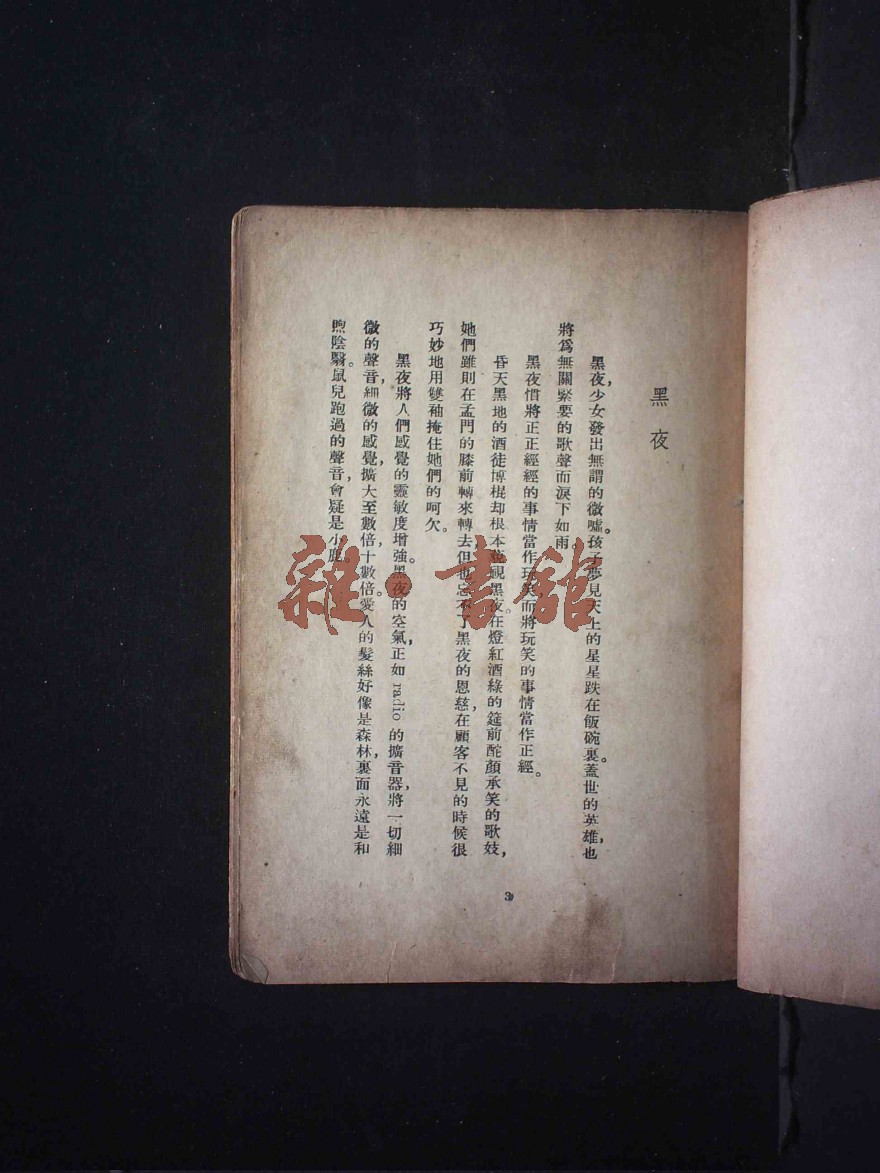 黑夜
黑夜，少女發出無謂的微噓。孩子夢見天上的星星跌在飯碗裏。蓋世的英雄，也
將爲無關緊要的歌聲而淚下如雨。
黑夜慣將正正經經的事情當作玩笑而將玩笑的事情當作正經。
昏天黑地的酒徒博棍却根本蔑視黑夜。在燈紅酒綠的筵前酡顏承笑的歌妓，
她們雖則在孟門的膝前轉來轉去但也忘不了黑夜的恩慈，在顧客不見的時候很
巧妙地用雙袖掩住她們的呵欠。
黑夜將人們感覺的靈敏度增強。黑夜的空氣，正如 radio 的擴音器，將一切細
微的聲音，細微的感覺，擴大至數倍，十數倍。愛人的髮絲好像是森林，裏面永遠是和
煦陰翳。鼠兒跑過的聲音，會疑是小鹿。
3
雜·書館